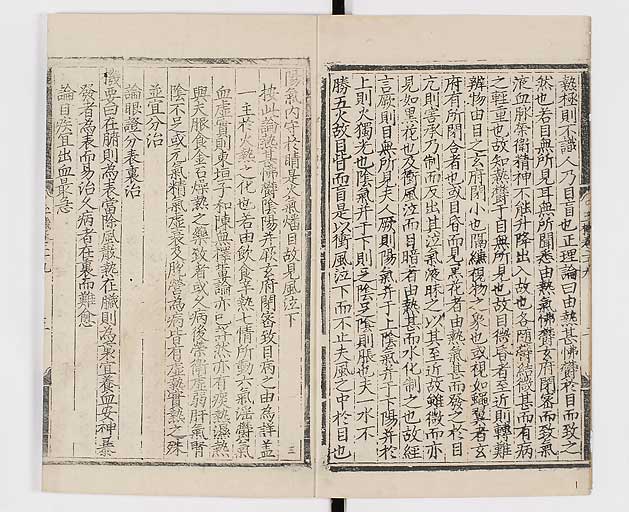 熱極則不識人乃目盲也正理論曰由熱甚怫鬱於目而致之
然也若目無所見耳無所聞悉由熱氣怫鬱玄府閉密而致氣
液血脉榮衛精神不能升降出入故也各隨鬱結微甚而有病
之輕重也故知熱鬱于目無所見也故目微昏者至近則轉難
辨物由目之玄府閉小也隔縑視物之象也或視如蠅翼者玄
府有所閉合者也或目昏而見黑花者由熱氣甚而發之於目
亢則害承乃制而反出其泣氣液昧之以其至近故雖微而亦
見如黑花也及衝風泣而目暗者由熱甚而水化制之也故經
言厥則目無所見夫人厥則陽氣并于上陰氣并于下陽并於
上則火獨光也陰氣并于下則足寒足寒則脹也夫一水不
勝五火故目眥而盲是以衝風泣下而不止夫風之中於目也
陽氣內守於睛是火氣燔目故見風泣下
按此論熱甚怫鬱陰陽并厥玄府閉密致目病之由為詳蓋
一主於火熱之化也若由飲食辛熱七情所動六氣淫鬱
血虛實則東垣子和陳無擇等論亦已
與夫服食金石燥熱之藥致者或久病後榮衛虛弱肝氣腎
陰不足或元氣精氣虛衰及脾營為病皆有虛熱實熱之殊
並宜分治
論眼證分表裏治
機要曰在腑則為表當除風散熱在臟則為裏宜養血安神暴
發者為表而易治久病者在裏而難愈
論目疾宜出血最急